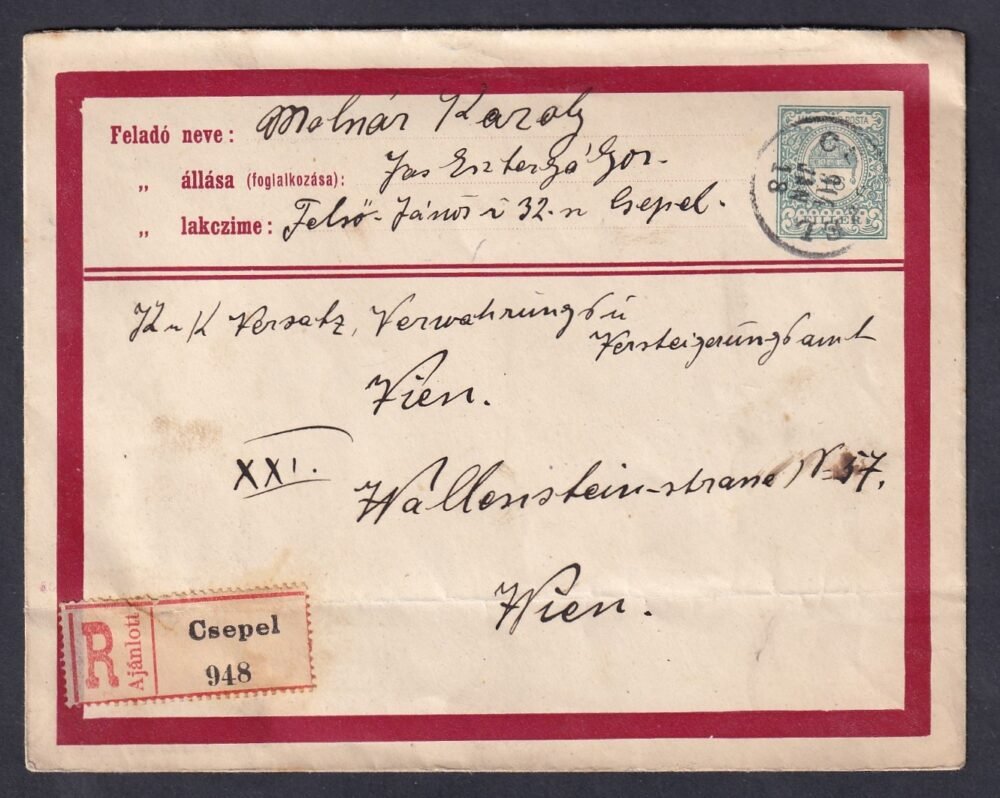 Feladó neve: Molnár Karoly
„ állása (foglalkozása): Vas Esztergályos.
„ lakczime: Felső-János u 32.n Csepel.
MAGYAR KIR. POSTA
FILLÉR
JAN
18
K u K Versatz, Verwahrungs u
Versteigerungsamt
Wien.
XXI.
Wallenstein-strasse No 57.
Wien.
R
Ajánlott
Csepel
948